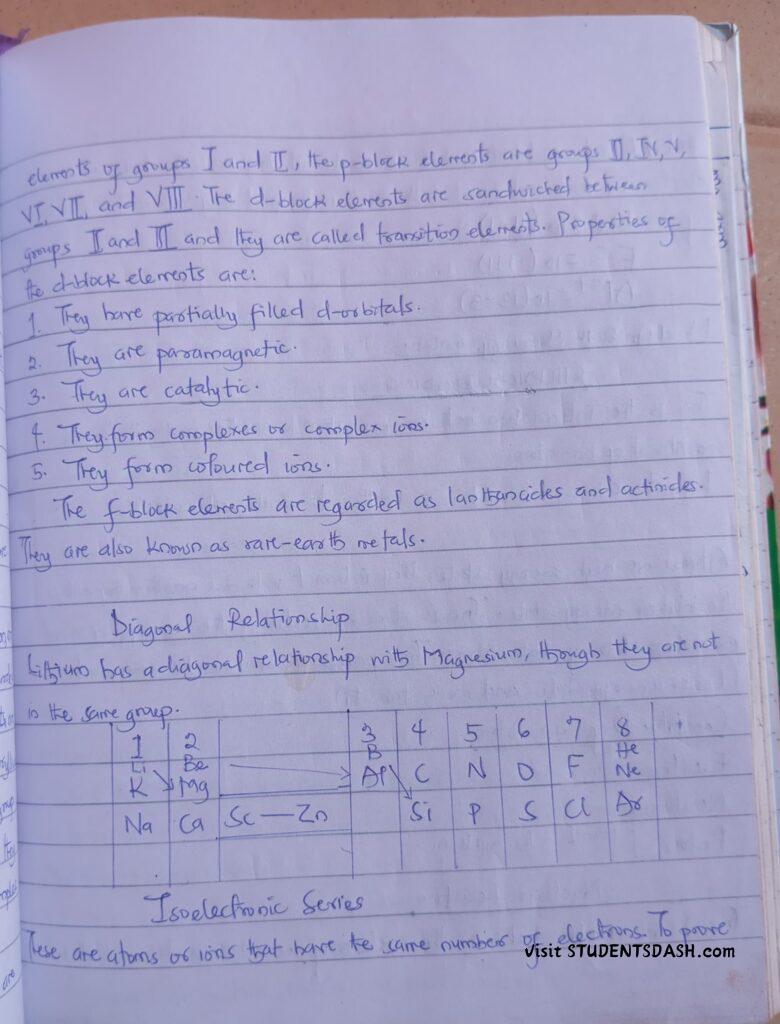 elements of groups I and II, the p-block elements are groups III, IV, V,
VI, VII, and VIII. The d-block elements are sandwiched between
groups II and III and they are called transition elements. Properties of
the d-block elements are:
1. They have partially filled d-orbitals.
2. They are paramagnetic.
3. They are catalytic.
4. They form complexes or complex ions.
5. They form coloured ions.
The f-block elements are regarded as lanthancides and actinides.
They are also known as rare-earth metals.
Diagonal Relationship
Lithium has a diagonal relationship with Magnesium, though they are not
in the same group.
1 2 3 4 5 6 7 8
Li Be B He
K Mg Al C N O F Ne
Na Ca Sc — Zn Si P S Cl Ar
Isoelectronic Series
These are atoms or ions that have the same number of electrons. To prove
visit STUDENTSDASH.com